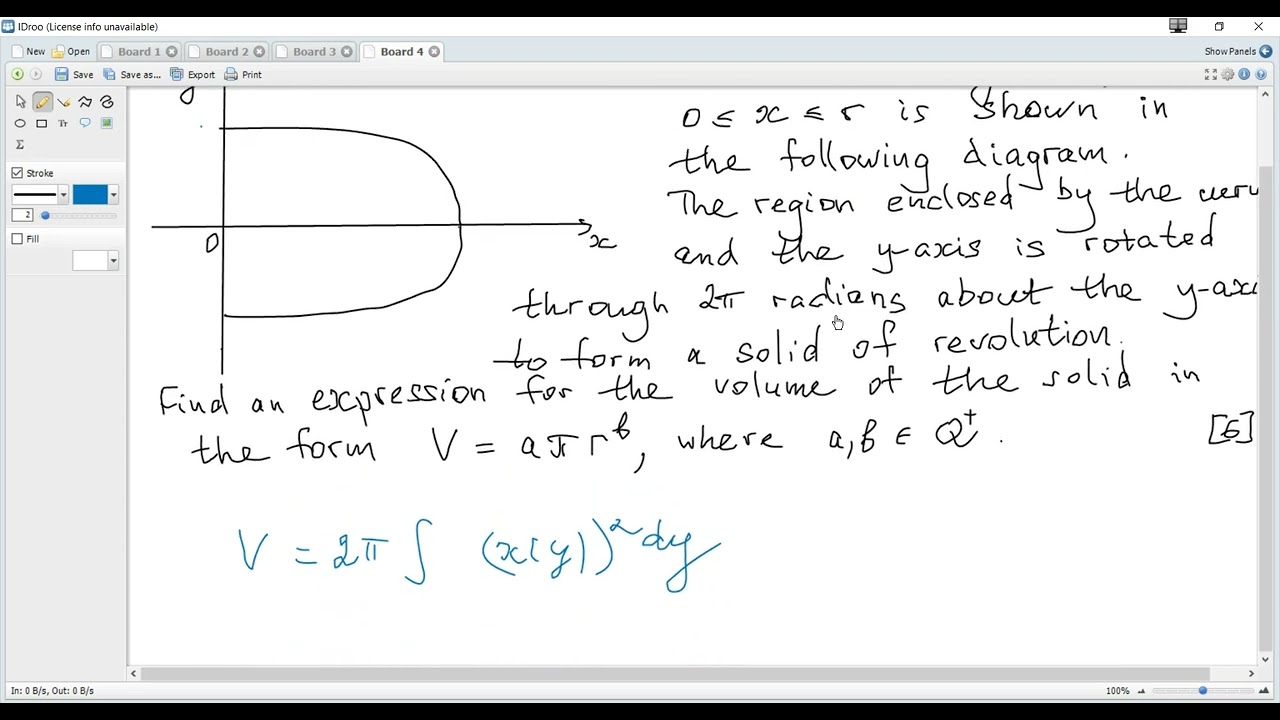 IDroo (License info unavailable)
New Open Board 1 Board 2 Board 3 Board 4 Show Panels
Save Save as... Export Print
0 ≤ x ≤ r is shown in
the following diagram.
The region enclosed by the curv
and the y-axis is rotated
through 2π radians about the y-axi
to form a solid of revolution.
Find an expression for the volume of the solid in
the form V = aπr^b, where a,b ∈ Q⁺. [6]
V = 2π∫ (x(y))² dy
0
x
Tr
Σ
Stroke
2
Fill
In: 0 B/s, Out: 0 B/s
100%